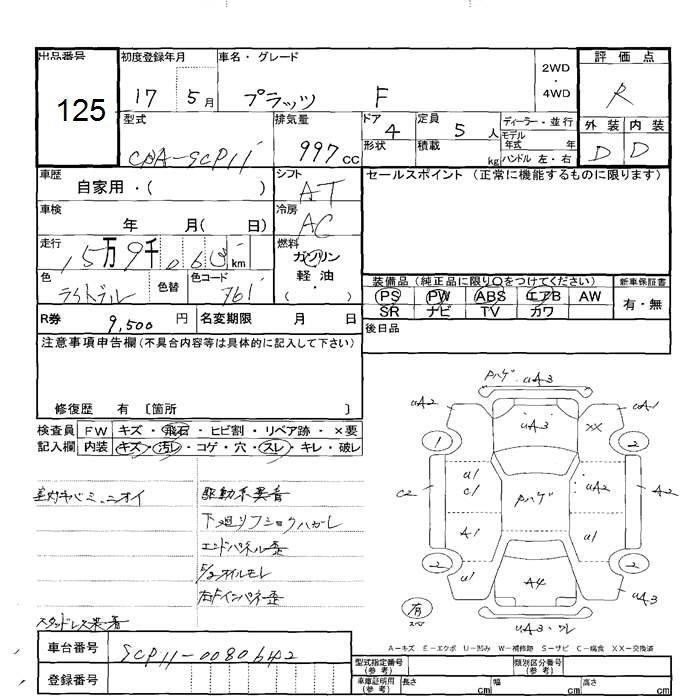 出品番号 初度登録年月 車名・グレード 2WD・4WD 評価点
125 17 5月 プラッツ F R
型式 排気量 ドア 定員 ディーラー・並行 外装 内装
CBA-SCP11 997CC 4 5人 モデル年式 年 D D
形状 積載 kg ハンドル 左・右
車歴 シフト セールスポイント (正常に機能するものに限ります)
自家用・( ) AT
車検 冷房
年 月( 日) AC
走行 燃料
15万9千 km ガソリン
色 色替 色コード 軽油 装備品 (純正品に限り○をつけてください) 新車保証書
761 ・( ) PS PW ABS エアB AW 有・無
SR ナビ TV カワ
R券 9,500円 名変期限 月 日 後日品
注意事項申告欄(不具合内容等は具体的に記入して下さい)
修復歴 有 〔箇所 〕
検査員 FW キズ・飛石・ヒビ割・リペア跡・×要
記入欄 内装 キズ・汚レ・コゲ・穴・スレ・キレ・破レ
Pハゲ uA3
uA2 uA3 uA1
XX
1 2
u1 C1 uA2
C2 Pハゲ A2
A1 u1
2 2
u1 A4 uA3
有
uA3・ワレ
ニオイ 駆動系異音
下廻りフショクハガレ
エンドパネル歪
オイルモレ
右Fインパネ歪
スタッドレス異音
A-キズ E-エクボ U-凹み W-補修跡 S-サビ C-腐食 XX-交換済
車台番号 SCP11-0080642
登録番号
型式指定番号(参考) 類別区分番号(参考)
車庫証明用(参考) 長さ cm 幅 cm 高さ cm